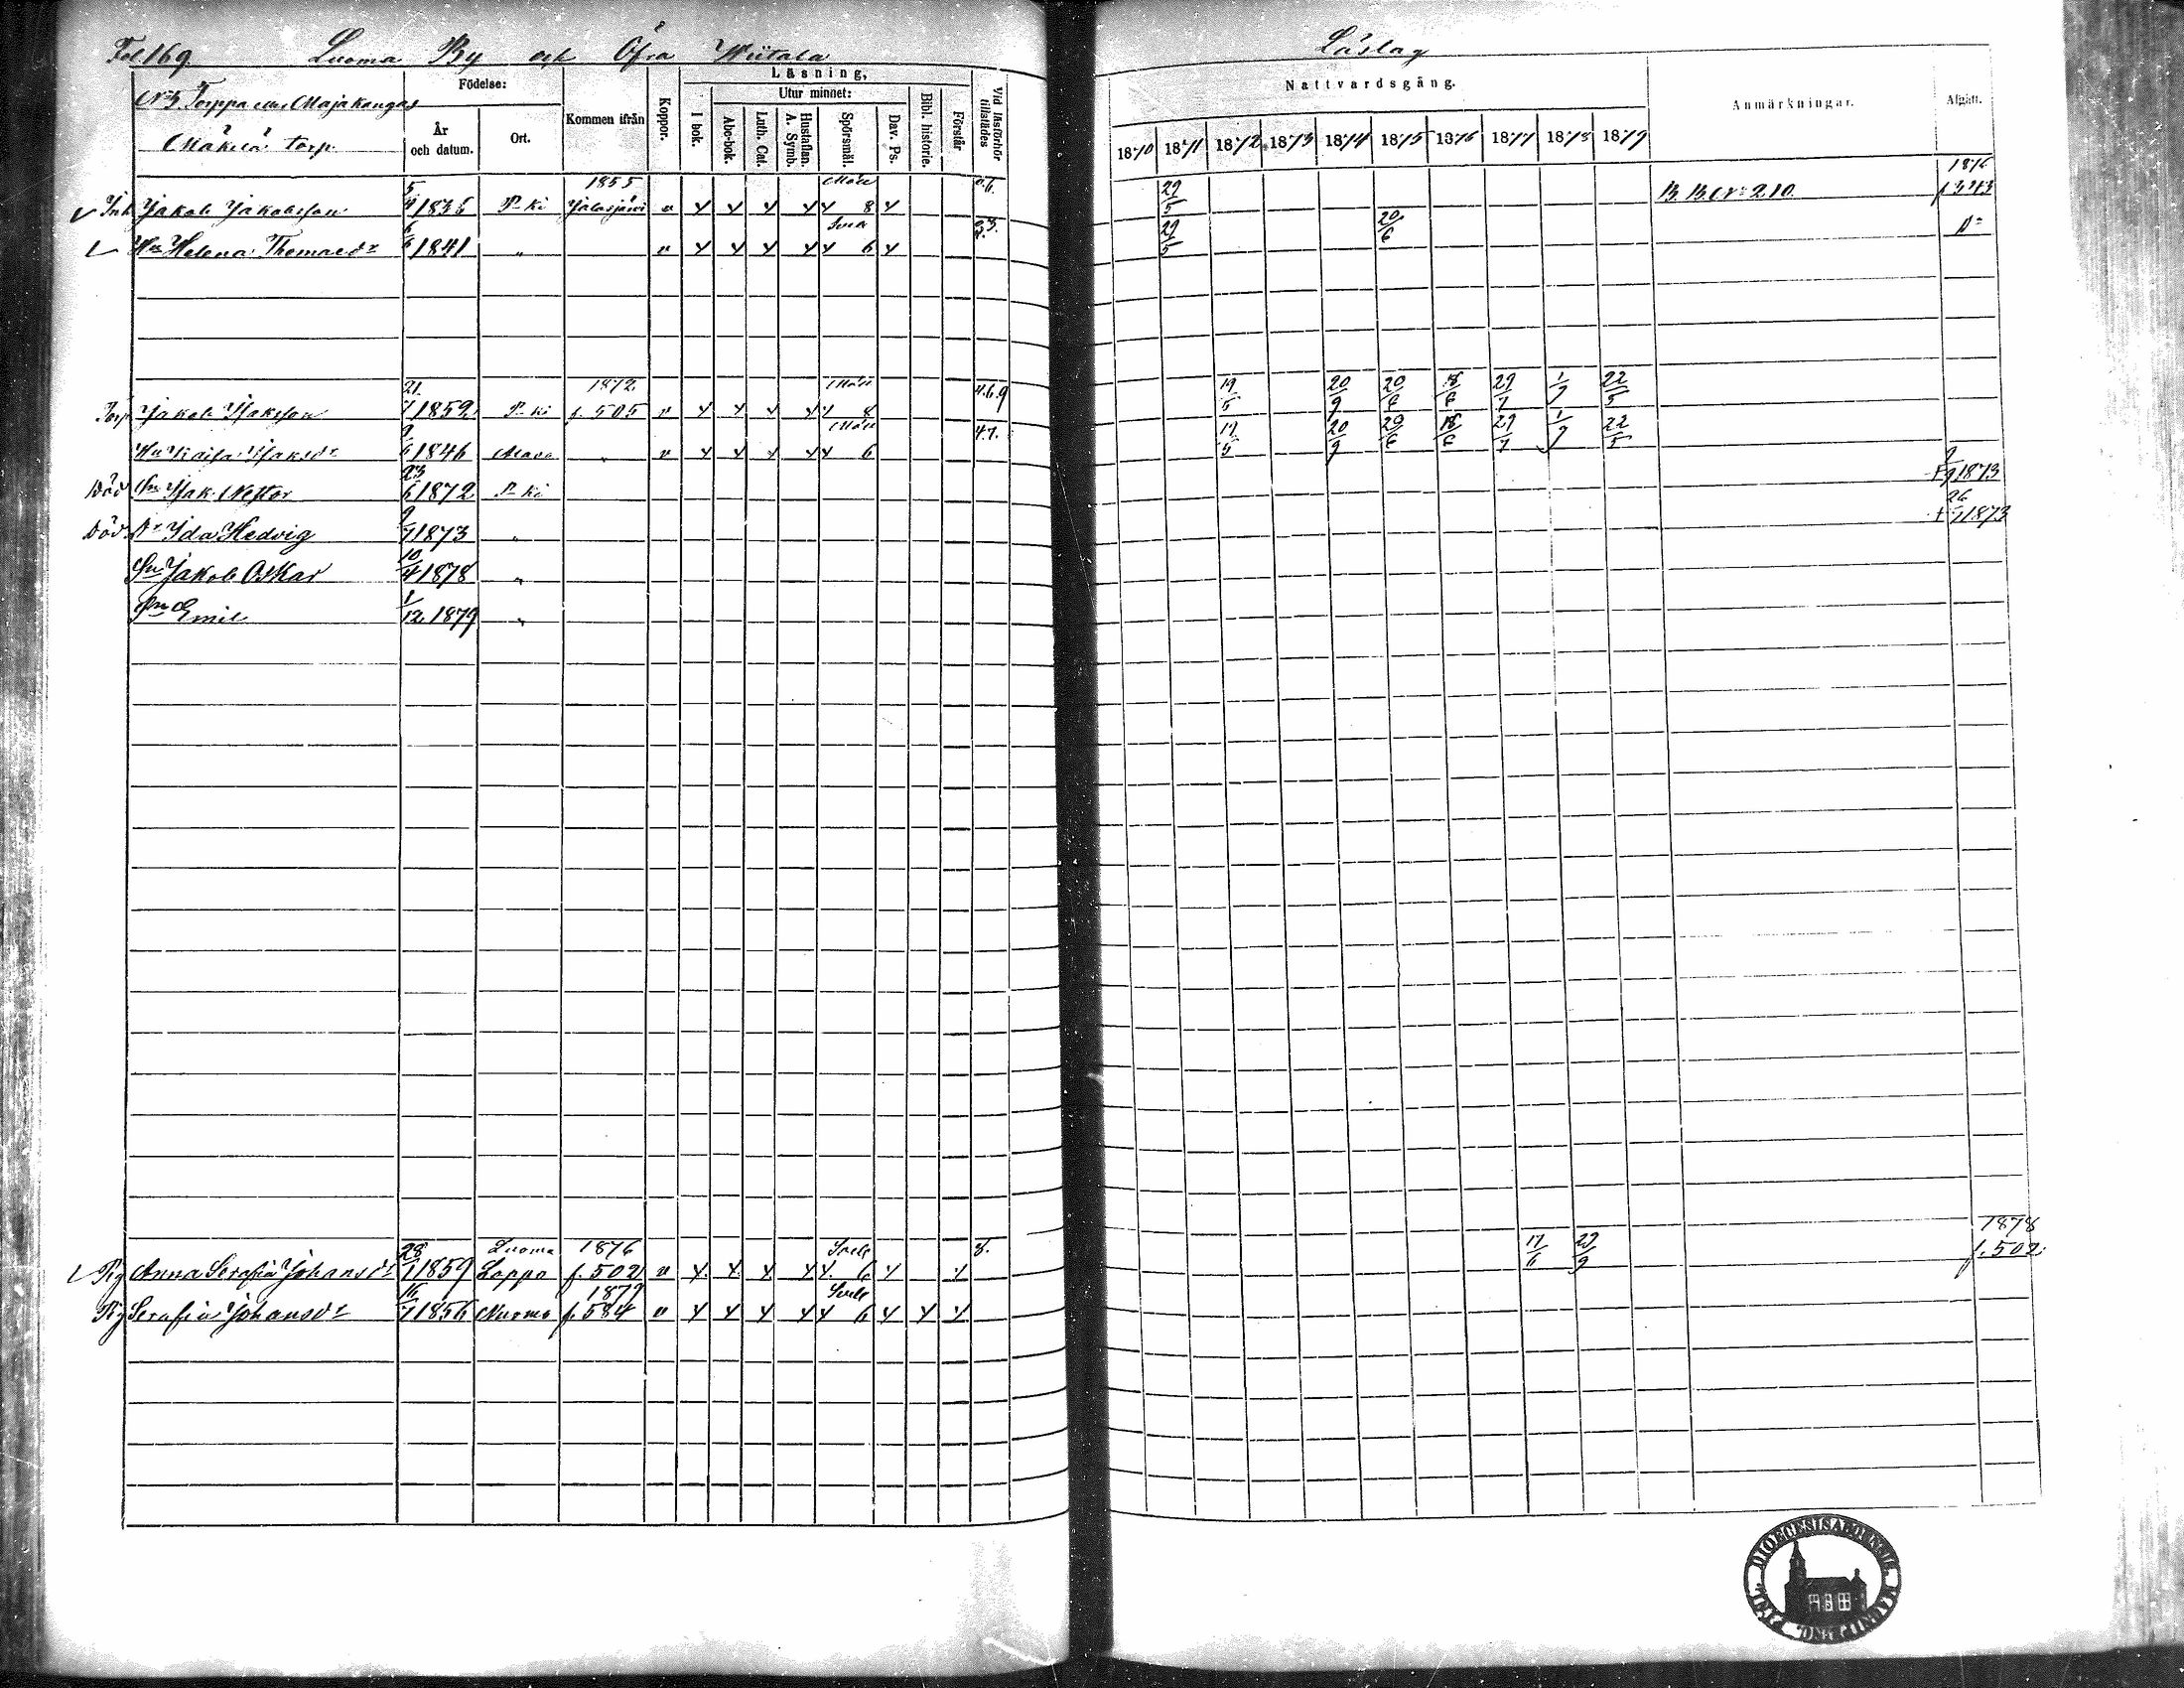 Fol. 169. Luoma By och Öfra Wiitala Läslag
Födelse: Läsning, Nattvardsgång. Anmärkningar. Afgått.
Utur minnet:
År och datum. Ort. Kommen ifrån Koppor. I bok. Abc-bok. Luth. Cat. Hustaflan. A. Symb. Spörsmål. Dav. Ps. Bibl. historie. Förstår Vid läsförhör tillstädes
N:o 3. Torppa Majakangas
Mäkelä torp
1870 1871 1872 1873 1874 1875 1876 1877 1878 1879
Inh Jakob Jakobsson 5/4 1836 P-ki 1855 Jalasjärvi v 8 29/5 B. B. N:o 210. 1876 f. 343
Hu Helena Thomasdr 6/6 1841 " v 6 29/5 20/6 D:o
Torp Jakob Isaksson 21/7 1852 P-ki 1872 f. 505 v 8 4.6.9 19/5 20/9 20/6 18/6 29/7 1/9 22/5
Hu Kaisa Isaksdr 9/6 1846 Alavo " v 6 4.7. 19/5 20/9 20/6 18/6 29/7 1/9 22/5
Död Sn Isak Nestor 23/6 1872 P-ki † 9/9 1873
Död Dr Ida Hedvig 9/7 1873 " † 26/7 1873
Sn Jakob Oskar 10/4 1878 "
Sn Emil 1/12 1879 "
Pig Anna Serafia Johansdr 28/1 1859 Luoma Lappo 1876 f. 502 v 6 8. 17/6 29/9 1878 f. 502.
Pig Serafia Johansdr 16/7 1856 Nurmo 1879 f. 584 v 6